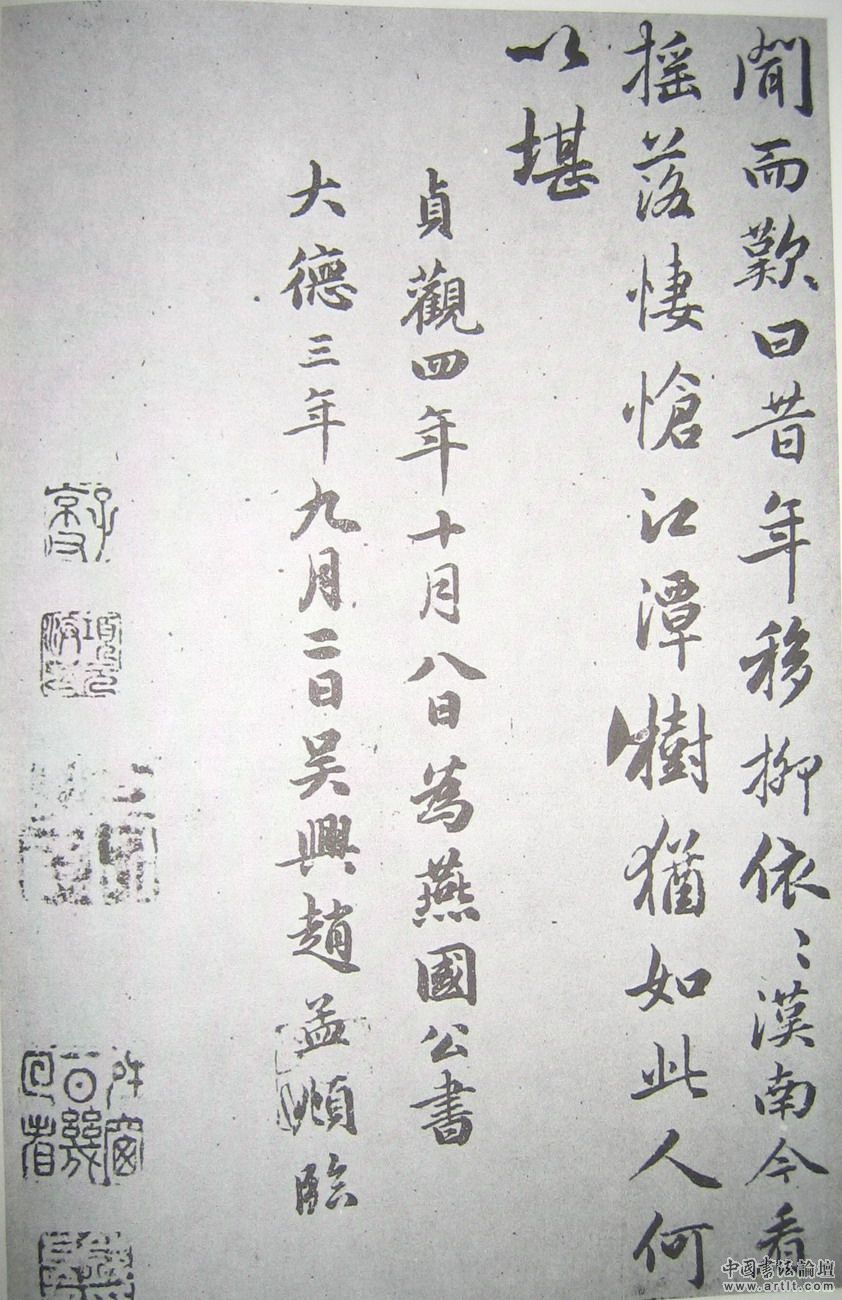 聞而歎曰昔年移柳依〻漢南今看
揺落悽愴江潭樹猶如此人何
以堪
貞觀四年十月八日為燕國公書
大德三年九月二日吴興趙孟頫臨
子京
中国书法論壇
www.artlt.com